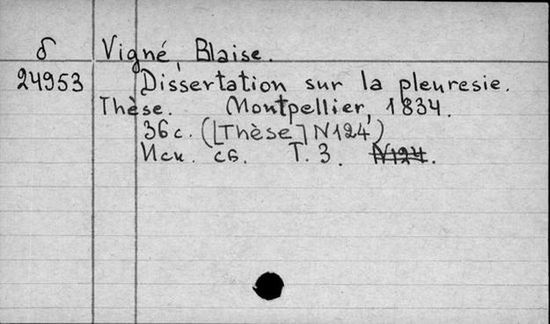 δ Vigné, Blaise.
24953 Dissertation sur la pleuresie.
Thèse. Montpellier, 1834.
36 с. ([Thèse] N124)
Иск. сб. Т. 3. N124.